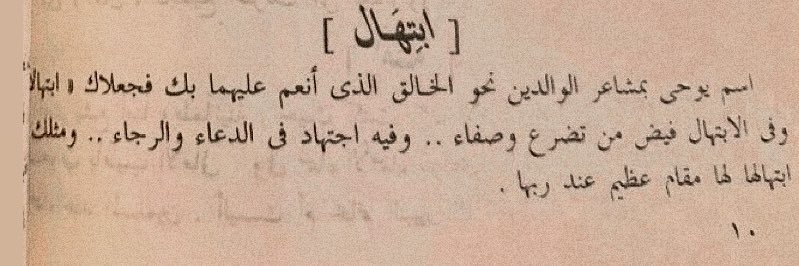 [ ابتِهَال ]
اسم يوحى بمشاعر الوالدين نحو الخالق الذى أنعم عليهما بك فجعلاك « ابتهالا
وفى الابتهال فيض من تضرع وصفاء .. وفيه اجتهاد فى الدعاء والرجاء .. ومثلك
ابتهالها لها مقام عظيم عند ربها .
١٠